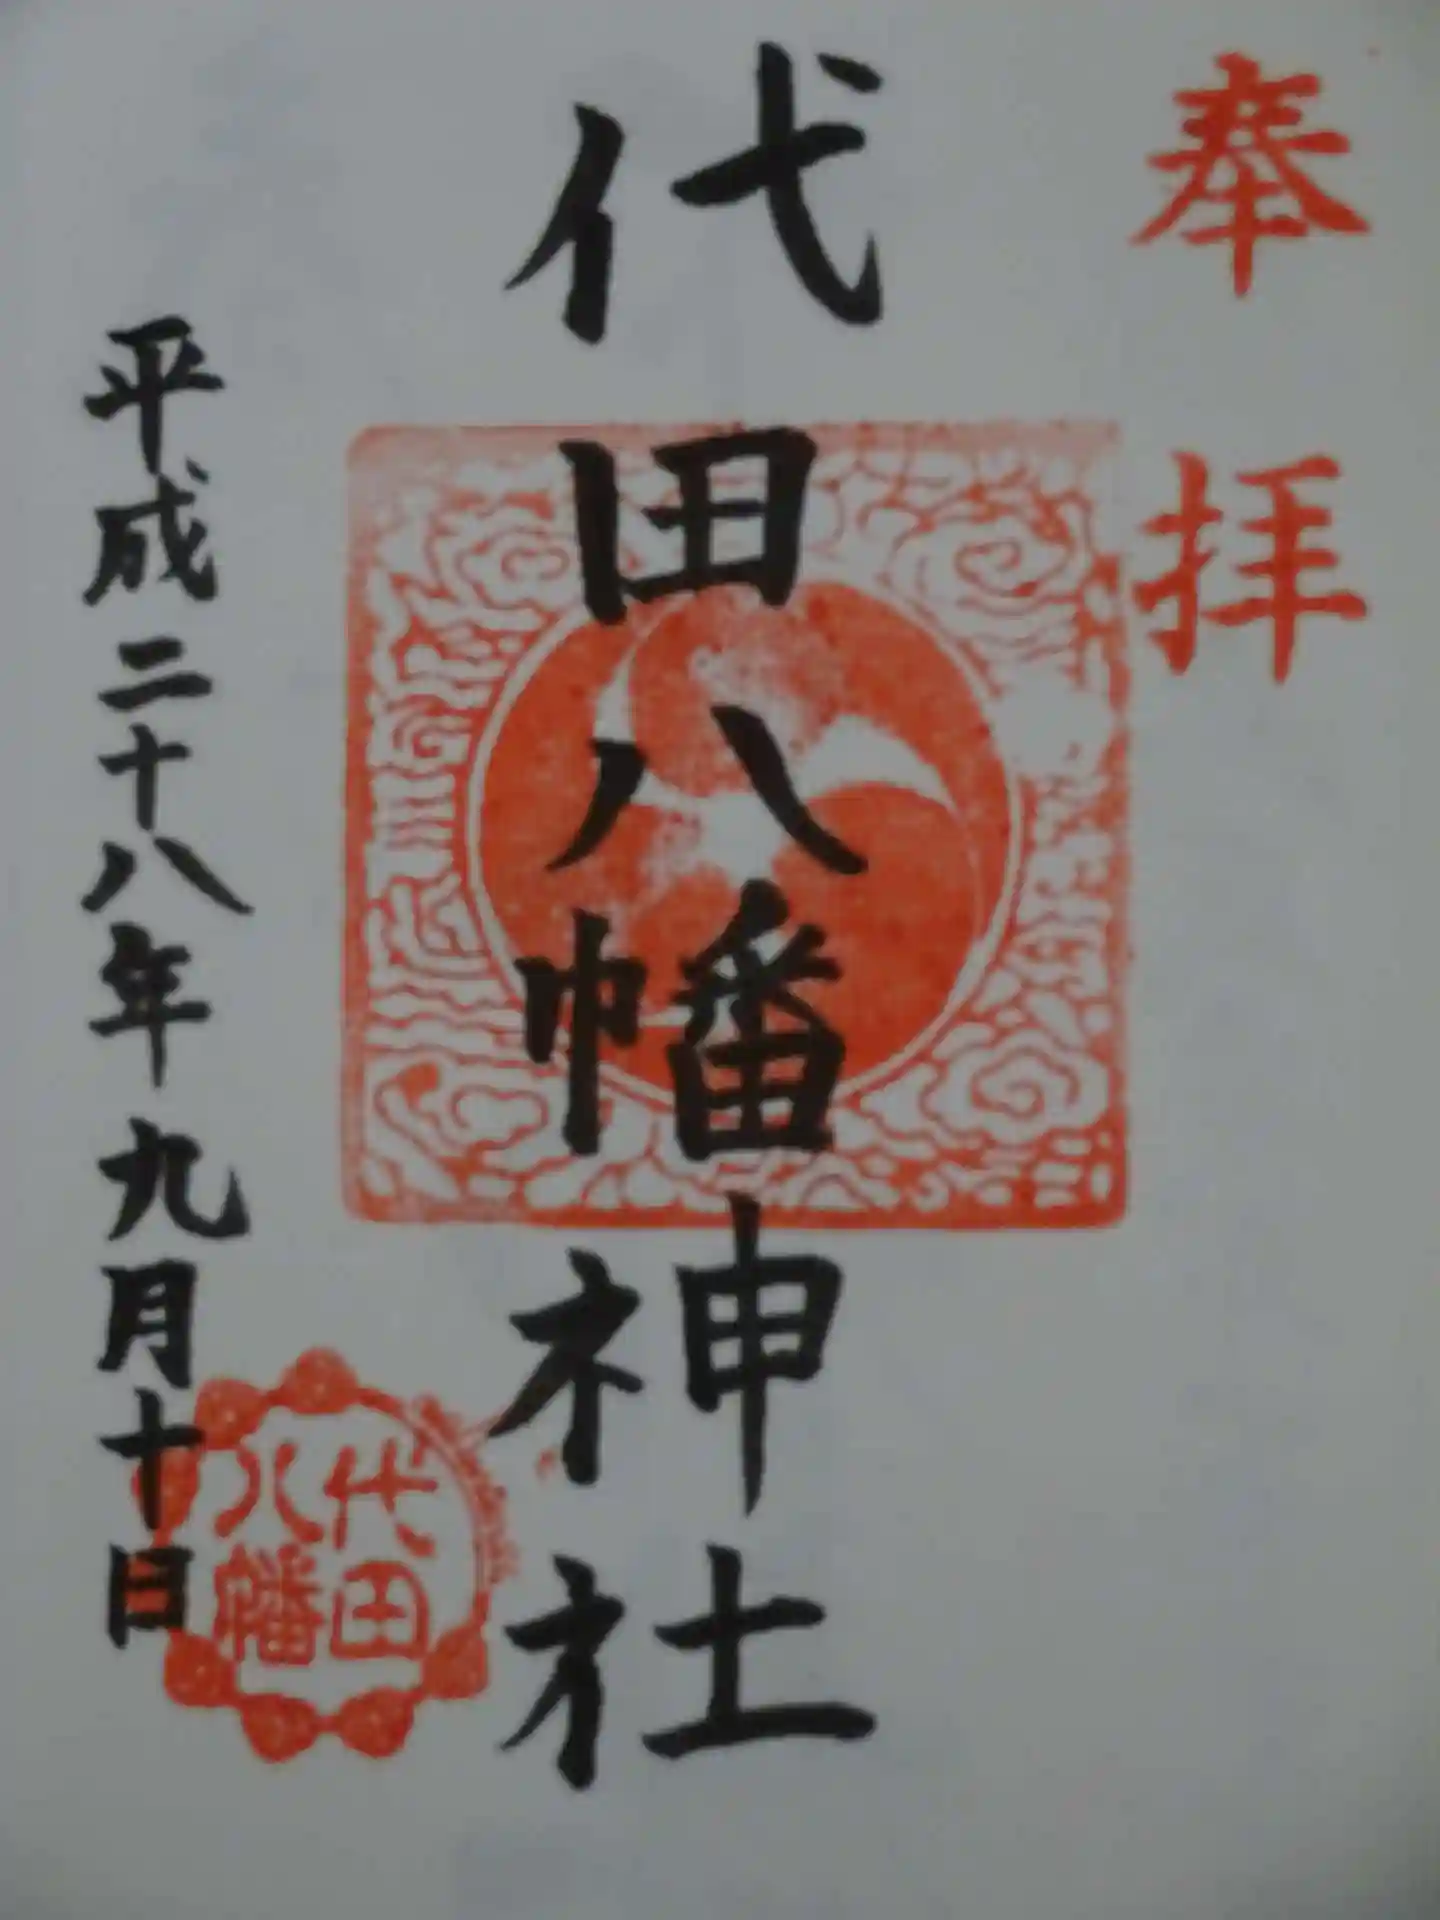 奉拝
代田八幡神社
平成二十八年九月十日
代田
八幡